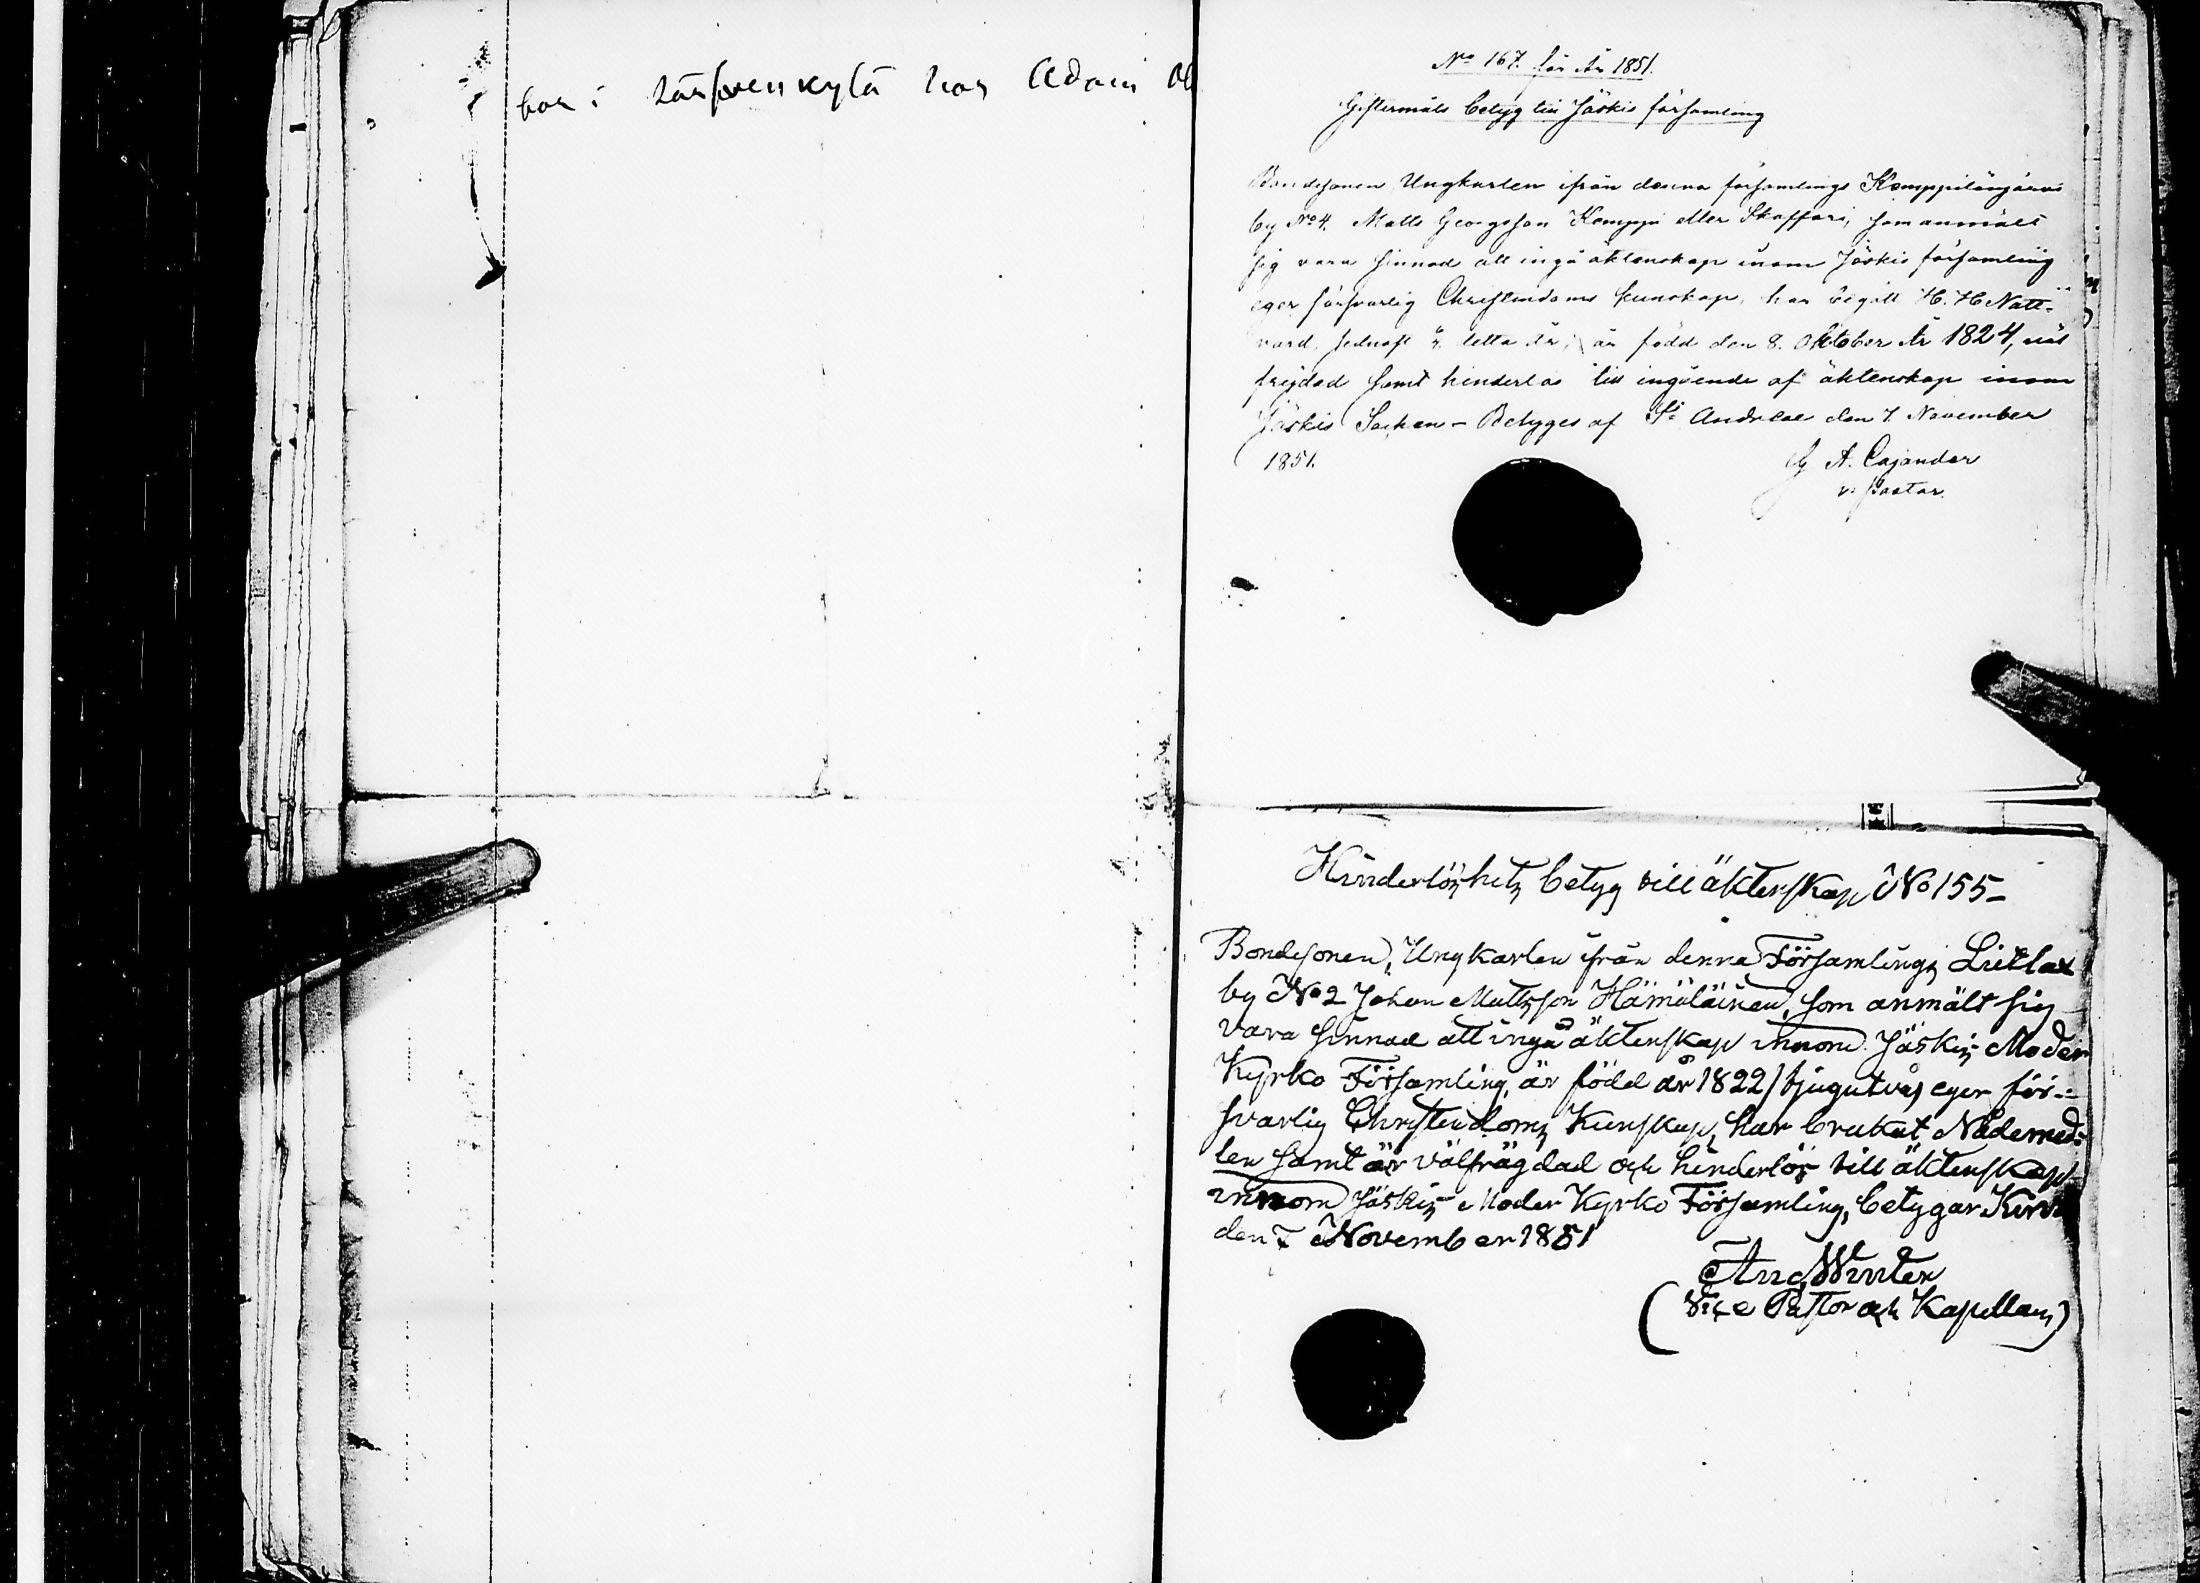 bor i Särfvenkylä hos Adam
No 167. för År 1851.
Giftermåls betyg till Jäskis församling
Bondesonen Ungkarlen ifrån denna församlings Kemppilänjärvi
by No 4. Matts Georgsson Kemppi eller Skaffari, som anmält
sig vara sinnad att ingå äktenskap inom Jäskis församling
eger försvarlig Christendoms kunskap, har begått H. H Natt-
vard, sednast detta år; är född den 8. Oktober År 1824, väl
frejdad samt hinderlös till ingående af äktenskap inom
Jäskis Socken - Betyges af St Andreae den 7 November
1851.
A. Cajander
v. Pastor.
Hinderlöshets betyg till äktenskap No 155-
Bondesonen, Ungkarlen ifrån denna Församlings Lietlax
by No 2 Johan Mattsson Hämäläinen, som anmält sig
vara sinnad att ingå äktenskap innom Jäskis Moder
Kyrko Församling, är född år 1822/tjugutvå/ eger för-
svarlig Christendoms Kunskap, har brukat Nådemed-
len samt är välfrägdad och hinderlös till äktenskap
innom Jäskis Moder Kyrko Församling, betygar Kirvu
den 7 November 1851
Aug Winter
(Vice Pastor och Kapellan)